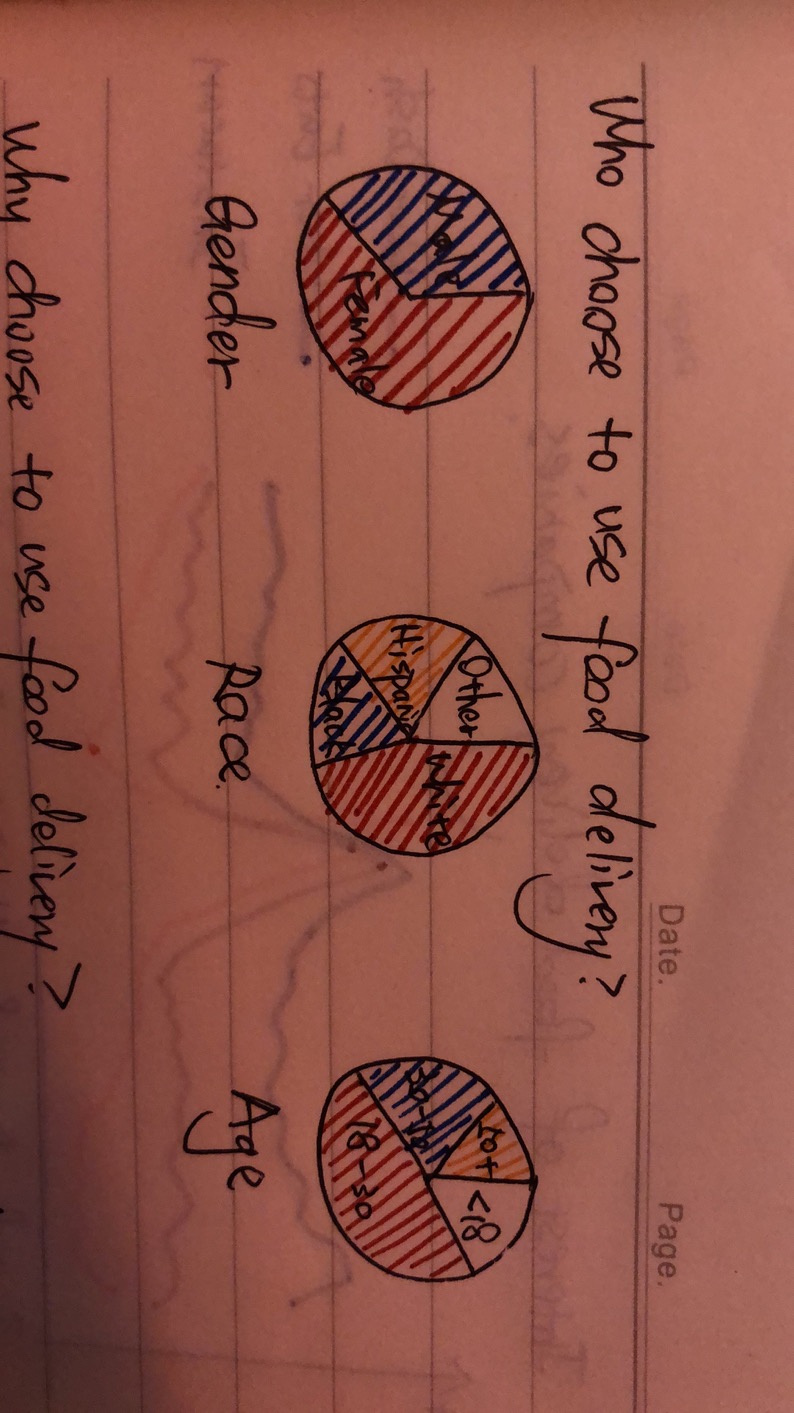 Date.
Page.
Who choose to use food delivery?
Male
Female
Gender
Other
White
Hispanic
Black
Race.
50+
<18
30-50
18-30
Age
Why choose to use food delivery?